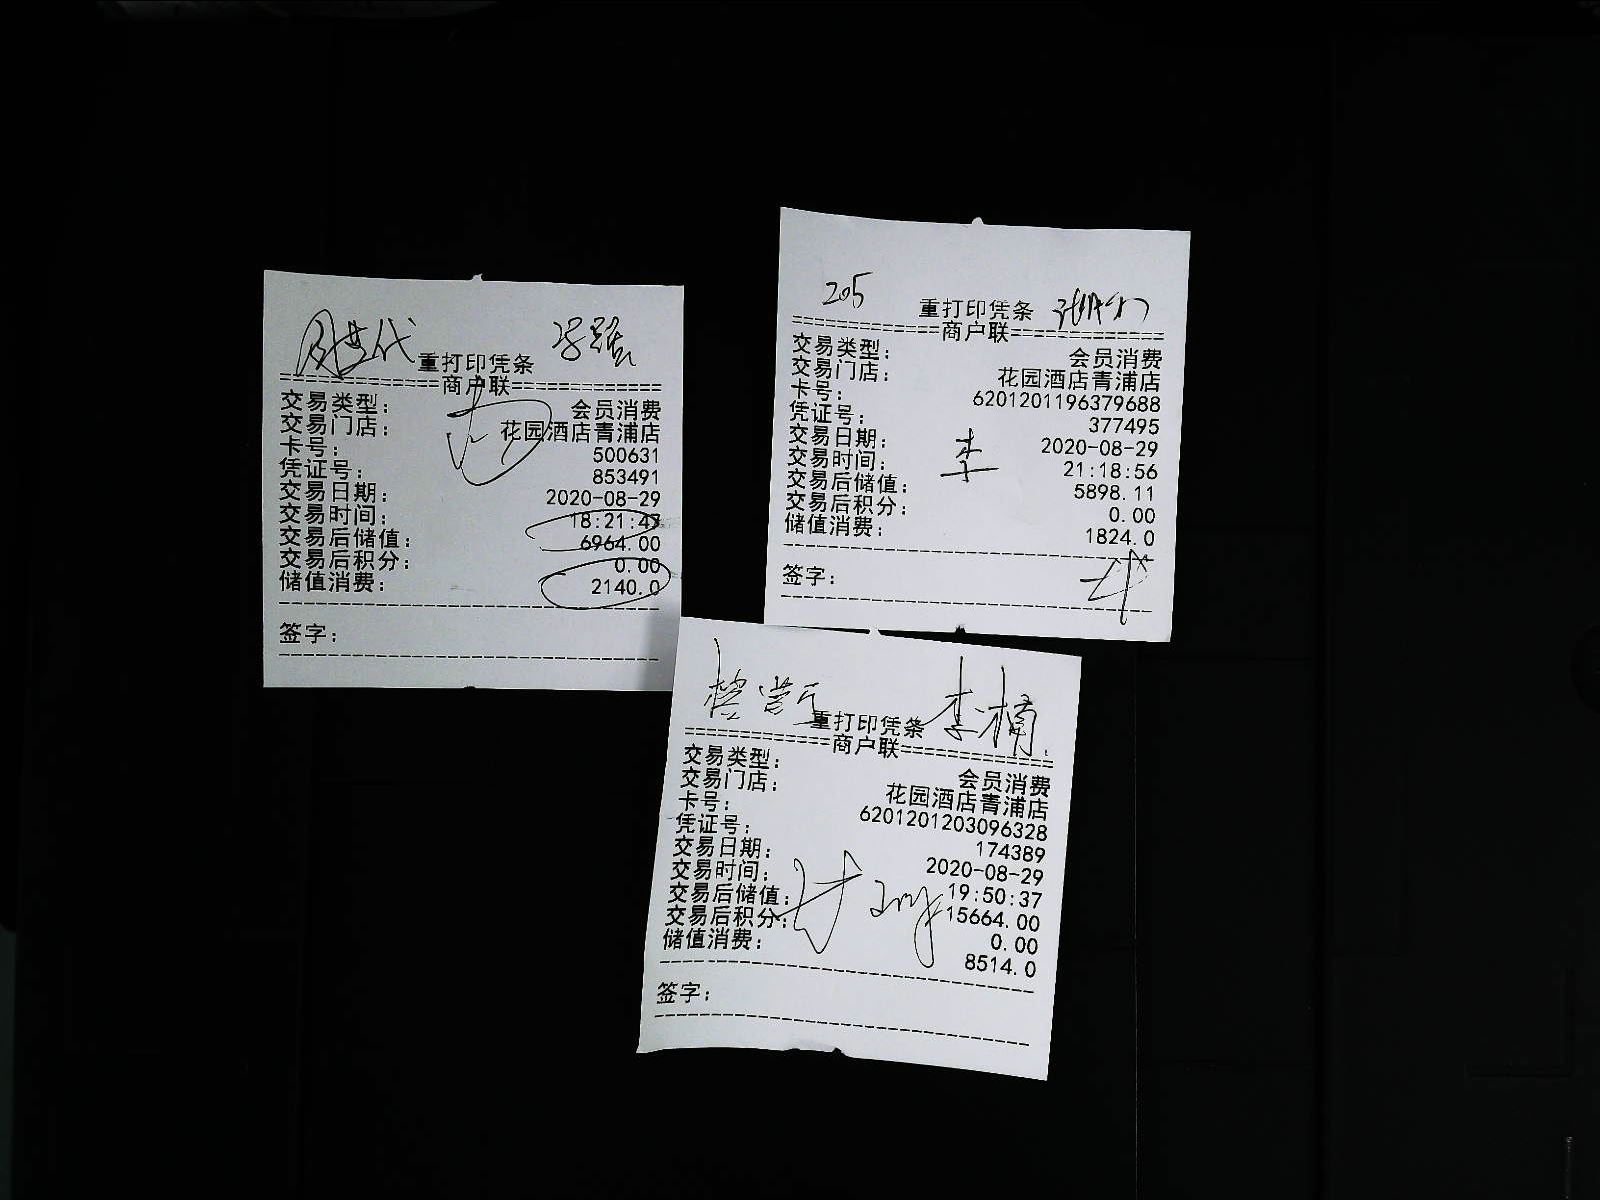 重打印凭条
==============商户联==============
交易类型: 会员消费
交易门店: 花园酒店青浦店
卡号: 500631
凭证号: 853491
交易日期: 2020-08-29
交易时间: 18:21:47
交易后储值: 6964.00
交易后积分: 0.00
储值消费: 2140.0
签字:
205 重打印凭条
==============商户联==============
交易类型: 会员消费
交易门店: 花园酒店青浦店
卡号: 6201201196379688
凭证号: 377495
交易日期: 2020-08-29
交易时间: 21:18:56
交易后储值: 5898.11
交易后积分: 0.00
储值消费: 1824.0
签字:
重打印凭条 李楠
==============商户联==============
交易类型: 会员消费
交易门店: 花园酒店青浦店
卡号: 6201201203096328
凭证号: 174389
交易日期: 2020-08-29
交易时间: 19:50:37
交易后储值: 15664.00
交易后积分: 0.00
储值消费: 8514.0
签字: